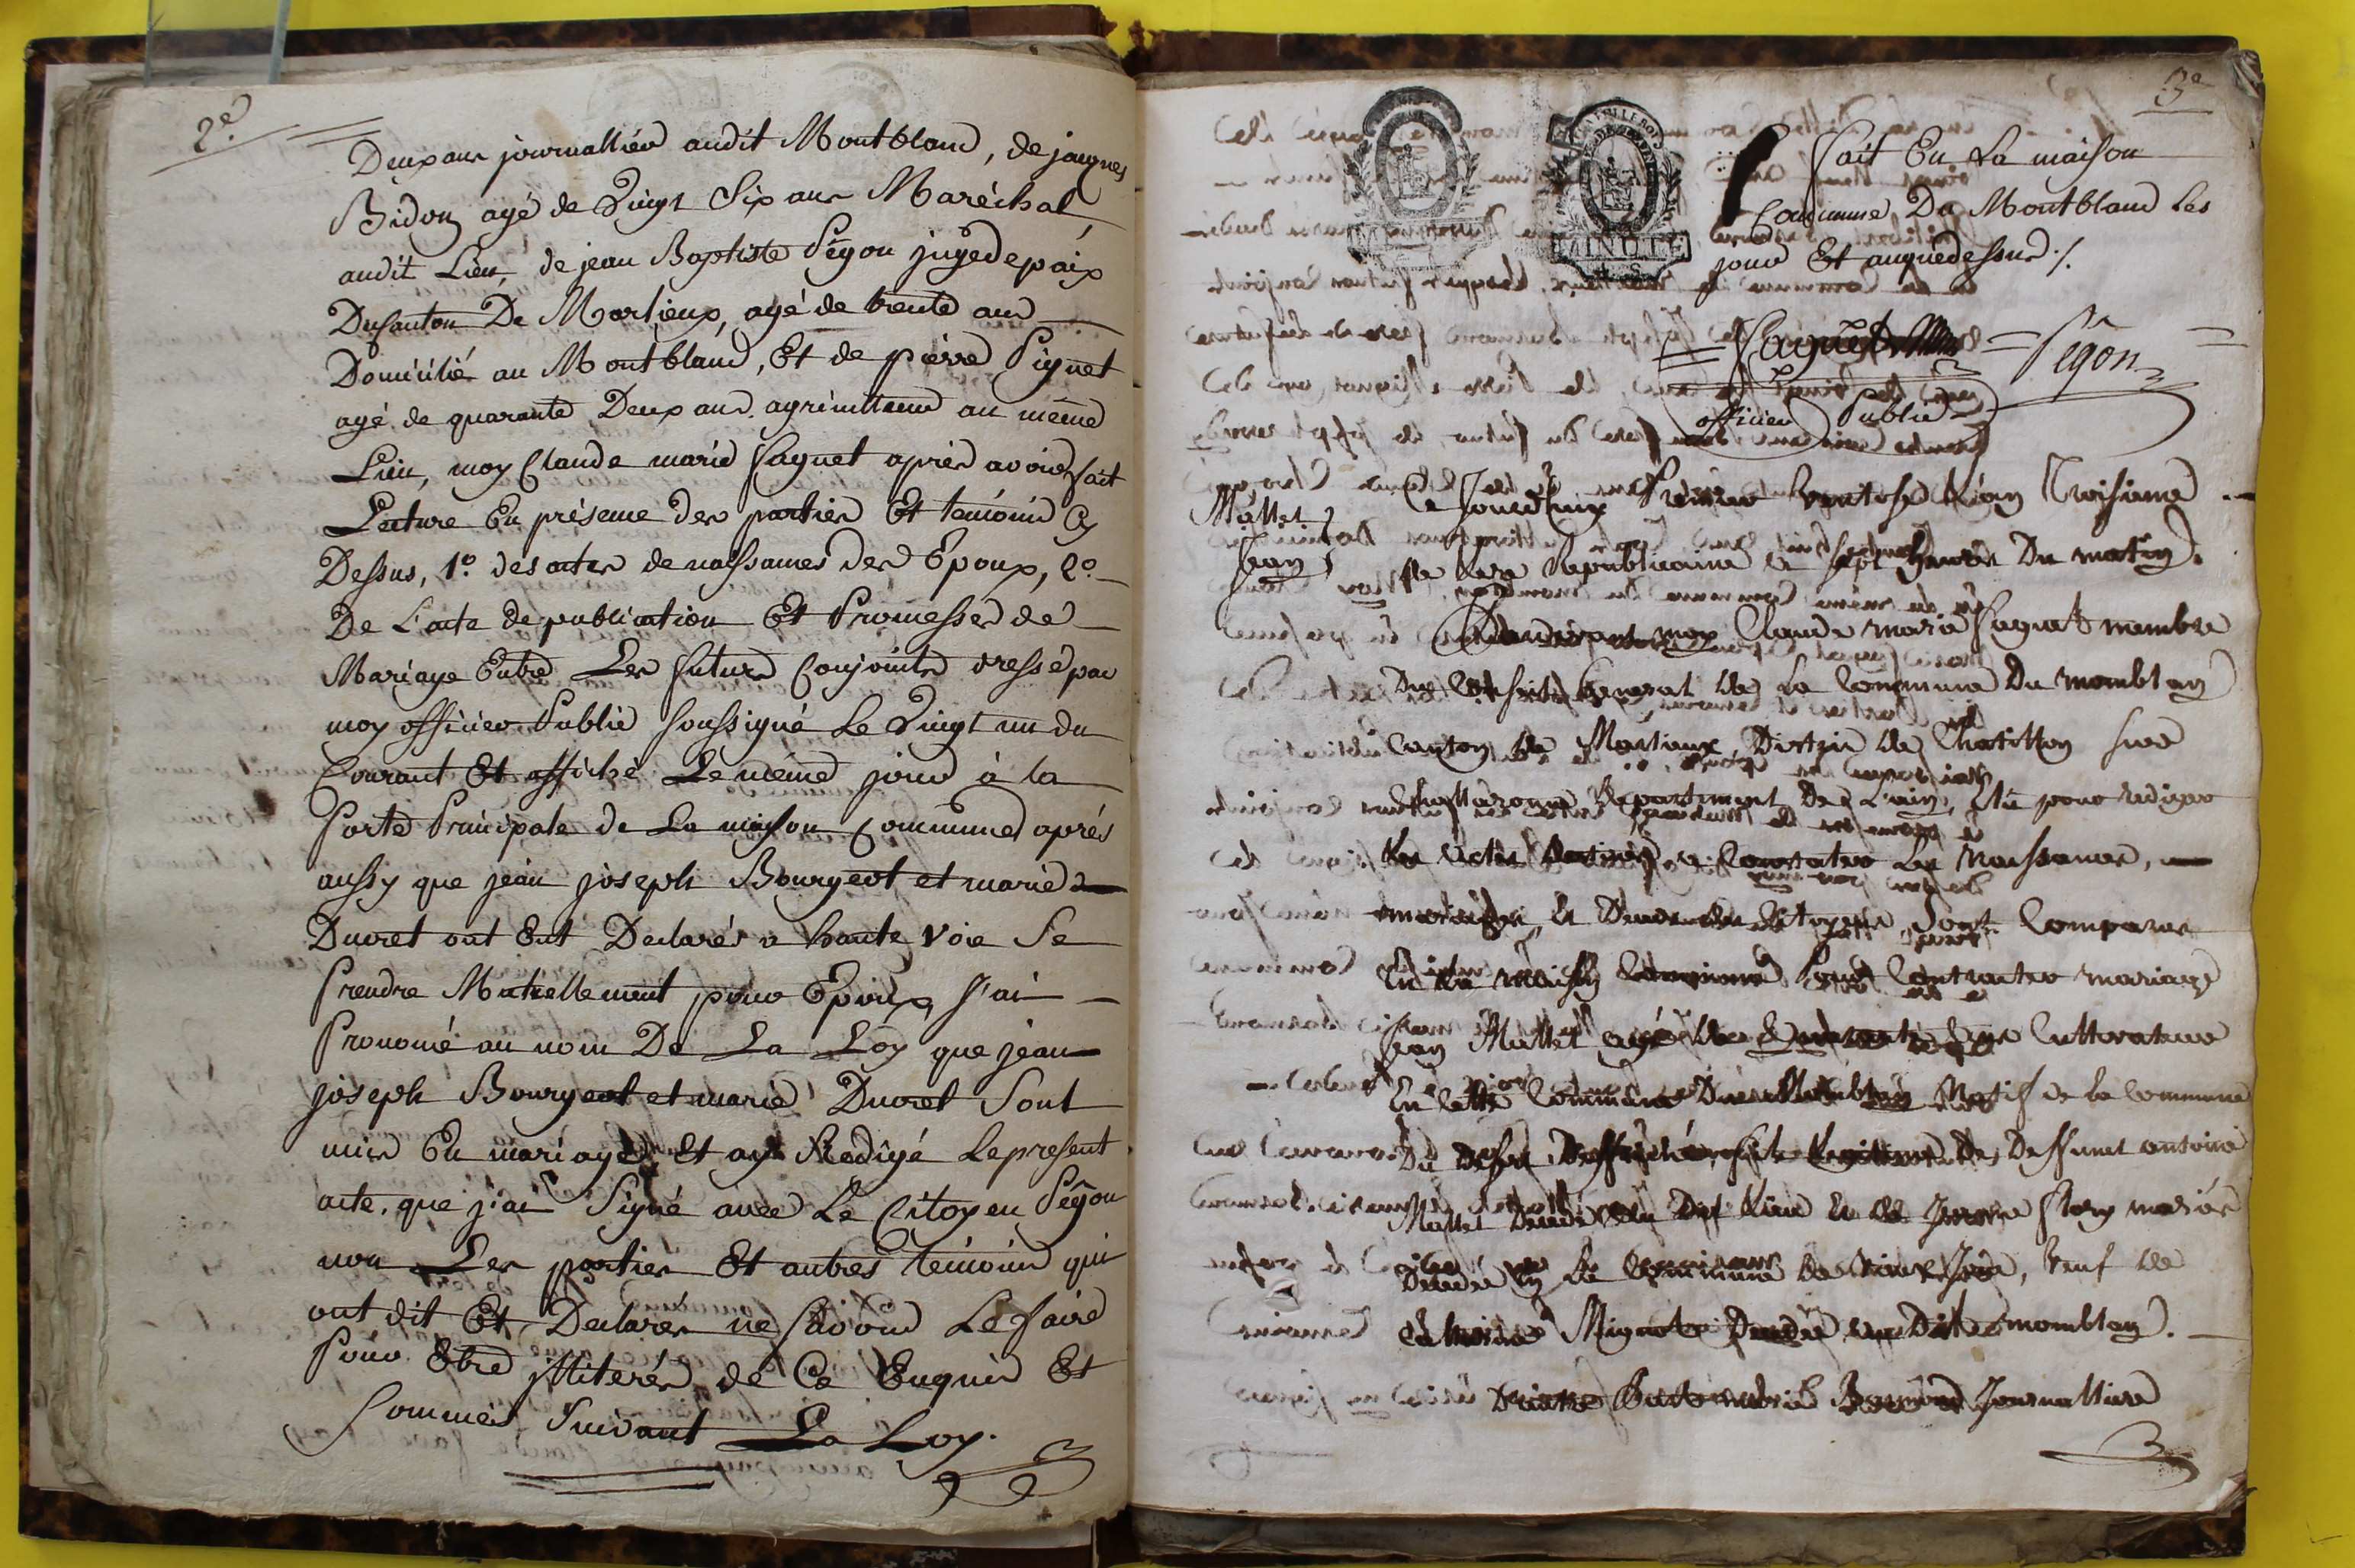 2e
Deux ans journallier audit Montbland, de jaques
Bidon agé de Vingt Six ans Maréchal
audit Lieu, de jean Baptiste Pégon juge de paix
Du Canton De Marlieux, agé de trente ans
Domicilié au Montbland, Et de pierre Pignet
agé de quarante Deux ans agriculteur au même
Lieu, moy Claude marie Saguet après avoir fait
Lecture En présence des parties Et temoins Cy
Dessus, 1º. des actes de naissances des Epoux, 2º
De L'acte de publication Et Promesses de
Mariage Entre Les futurs Conjoints dressé par
moy officier Public soussigné Le Vingt un du
Courant Et affiché Le même jour à la
Porte Principale de La maison Commune après
aussy que jean joseph Bourgeot et marie
Ducret ont Eut Declarés a haute Voie Se
Prendre Mutuellement pour Epoux, J'ai
Prononcé au nom De La Loy que jean
joseph Bourgeot et marie Ducret Sont
unis En mariage Et ay Redigé Le present
acte, que j'ai Signé avec Le Citoyen Pégon
non Les parties Et autres temoins qui
ont dit Et Declarés ne Savoir Le faire
Pour Être illiterés de Ce Enquis Et
Sommés Suivant La Loy.
3e
Fait En La maison
Commune Du Montbland Les
jour Et an que dessus ./.
Saguet Pégon
officier Public
MINUTE
Mallet
Jean
Ce Jourd'huy Premier Ventose L'an Troisieme
de Lere Republicaine a sept heures Du matin
Pardevant moy Claude marie Saguet membre
Du Conseil General de La Commune Du montblan
Canton de Marlieux, District de Chatillon sur
Challaronne Departement De L'ain, élu pour rediger
Les actes Destinés a Constater Les Naissances,
mariages, et Deces des Citoyens, Sont Comparus
En La maison Commune Pour Contracter mariage
Jean Mallet agé de Quarante Cultivateur
En Cette Commune Du Montblan Natif de la Commune
Du fils Legitime De Deffunct antoine
Mallet Decedé Du Dit Lieu Et de mariés
Decedée En La Commune De Veuf de
Mignot Decedée au Dit montblan.
marie Journalliere